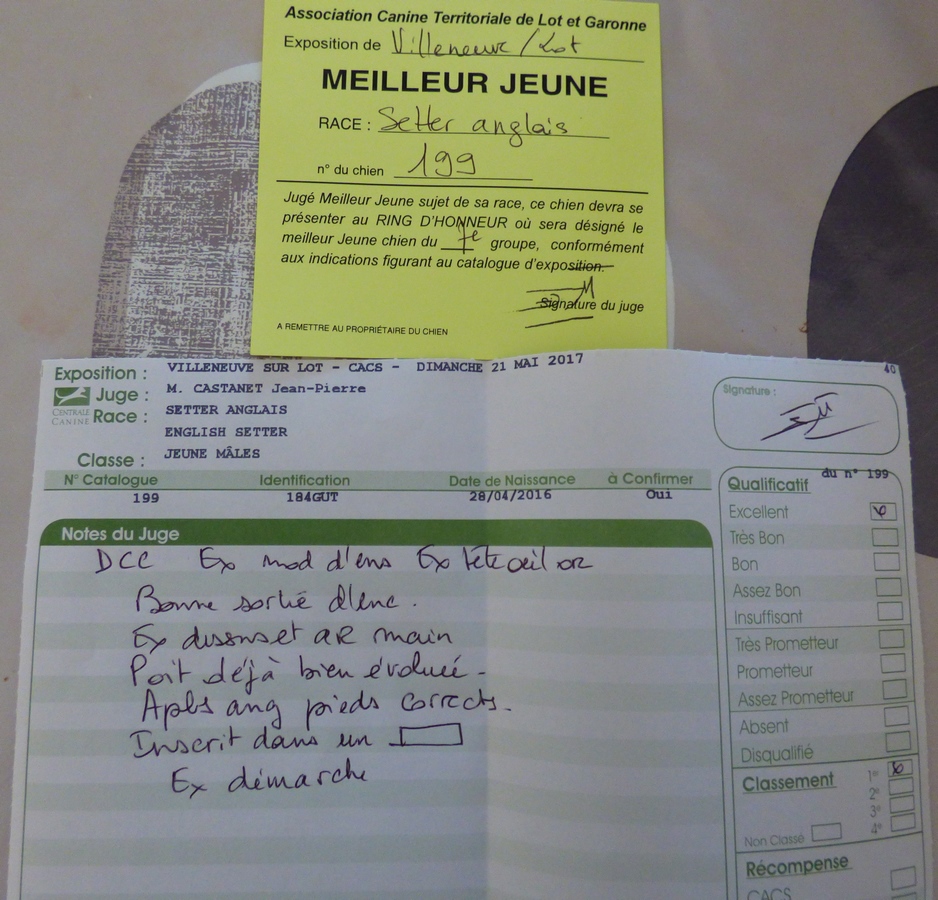 Association Canine Territoriale de Lot et Garonne
Exposition de Villeneuve / Lot
MEILLEUR JEUNE
RACE : Setter anglais
n° du chien 199
Jugé Meilleur Jeune sujet de sa race, ce chien devra se
présenter au RING D'HONNEUR où sera désigné le
meilleur Jeune chien du 7e groupe, conformément
aux indications figurant au catalogue d'exposition.
Signature du juge
A REMETTRE AU PROPRIÉTAIRE DU CHIEN
40
Exposition : VILLENEUVE SUR LOT - CACS - DIMANCHE 21 MAI 2017
Juge : M. CASTANET Jean-Pierre
CENTRALE CANINE
Race : SETTER ANGLAIS
ENGLISH SETTER
Classe : JEUNE MÂLES
Signature :
N° Catalogue Identification Date de Naissance à Confirmer
199 184GUT 28/04/2016 Oui
Notes du Juge
DCC Ex mod d'ens Ex tête oeil or
Bonne sortie d'enc.
Ex et AR main
Poit déjà bien évolué.
Aplbs ang pieds corrects.
Inscrit dans un
Ex démarche
du n° 199
Qualificatif
Excellent
Très Bon
Bon
Assez Bon
Insuffisant
Très Prometteur
Prometteur
Assez Prometteur
Absent
Disqualifié
Classement 1er
2e
3e
Non Classé 4e
Récompense
CACS